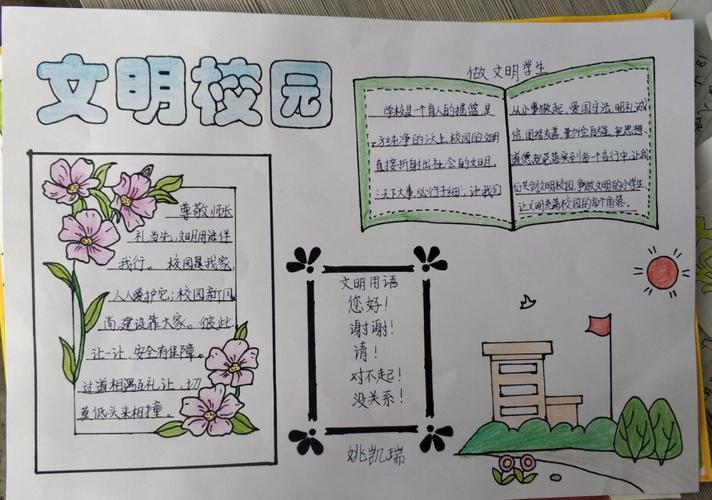 文明校园
做文明学生
学校是一个育人的摇篮,是
一方纯净的沃土,校园的文明
直接折射出社会的文明,
天下大事,必行于细,让我们
从小事做起,爱国守法,明礼诚
信,团结友善,勤俭自强,把思想
道德规范落实到每个言行中,让我
们共创文明校园,争做文明的小学生
让文明充满校园的每个角落.
尊敬师长
礼当先,文明用语伴
我行。校园是我家,
人人爱护它;校园新风
尚,建设靠大家。彼此
让一让,安全有保障。
过道相遇互礼让,切
莫低头来相撞。
文明用语
您好!
谢谢!
请!
对不起!
没关系!
姚凯瑞